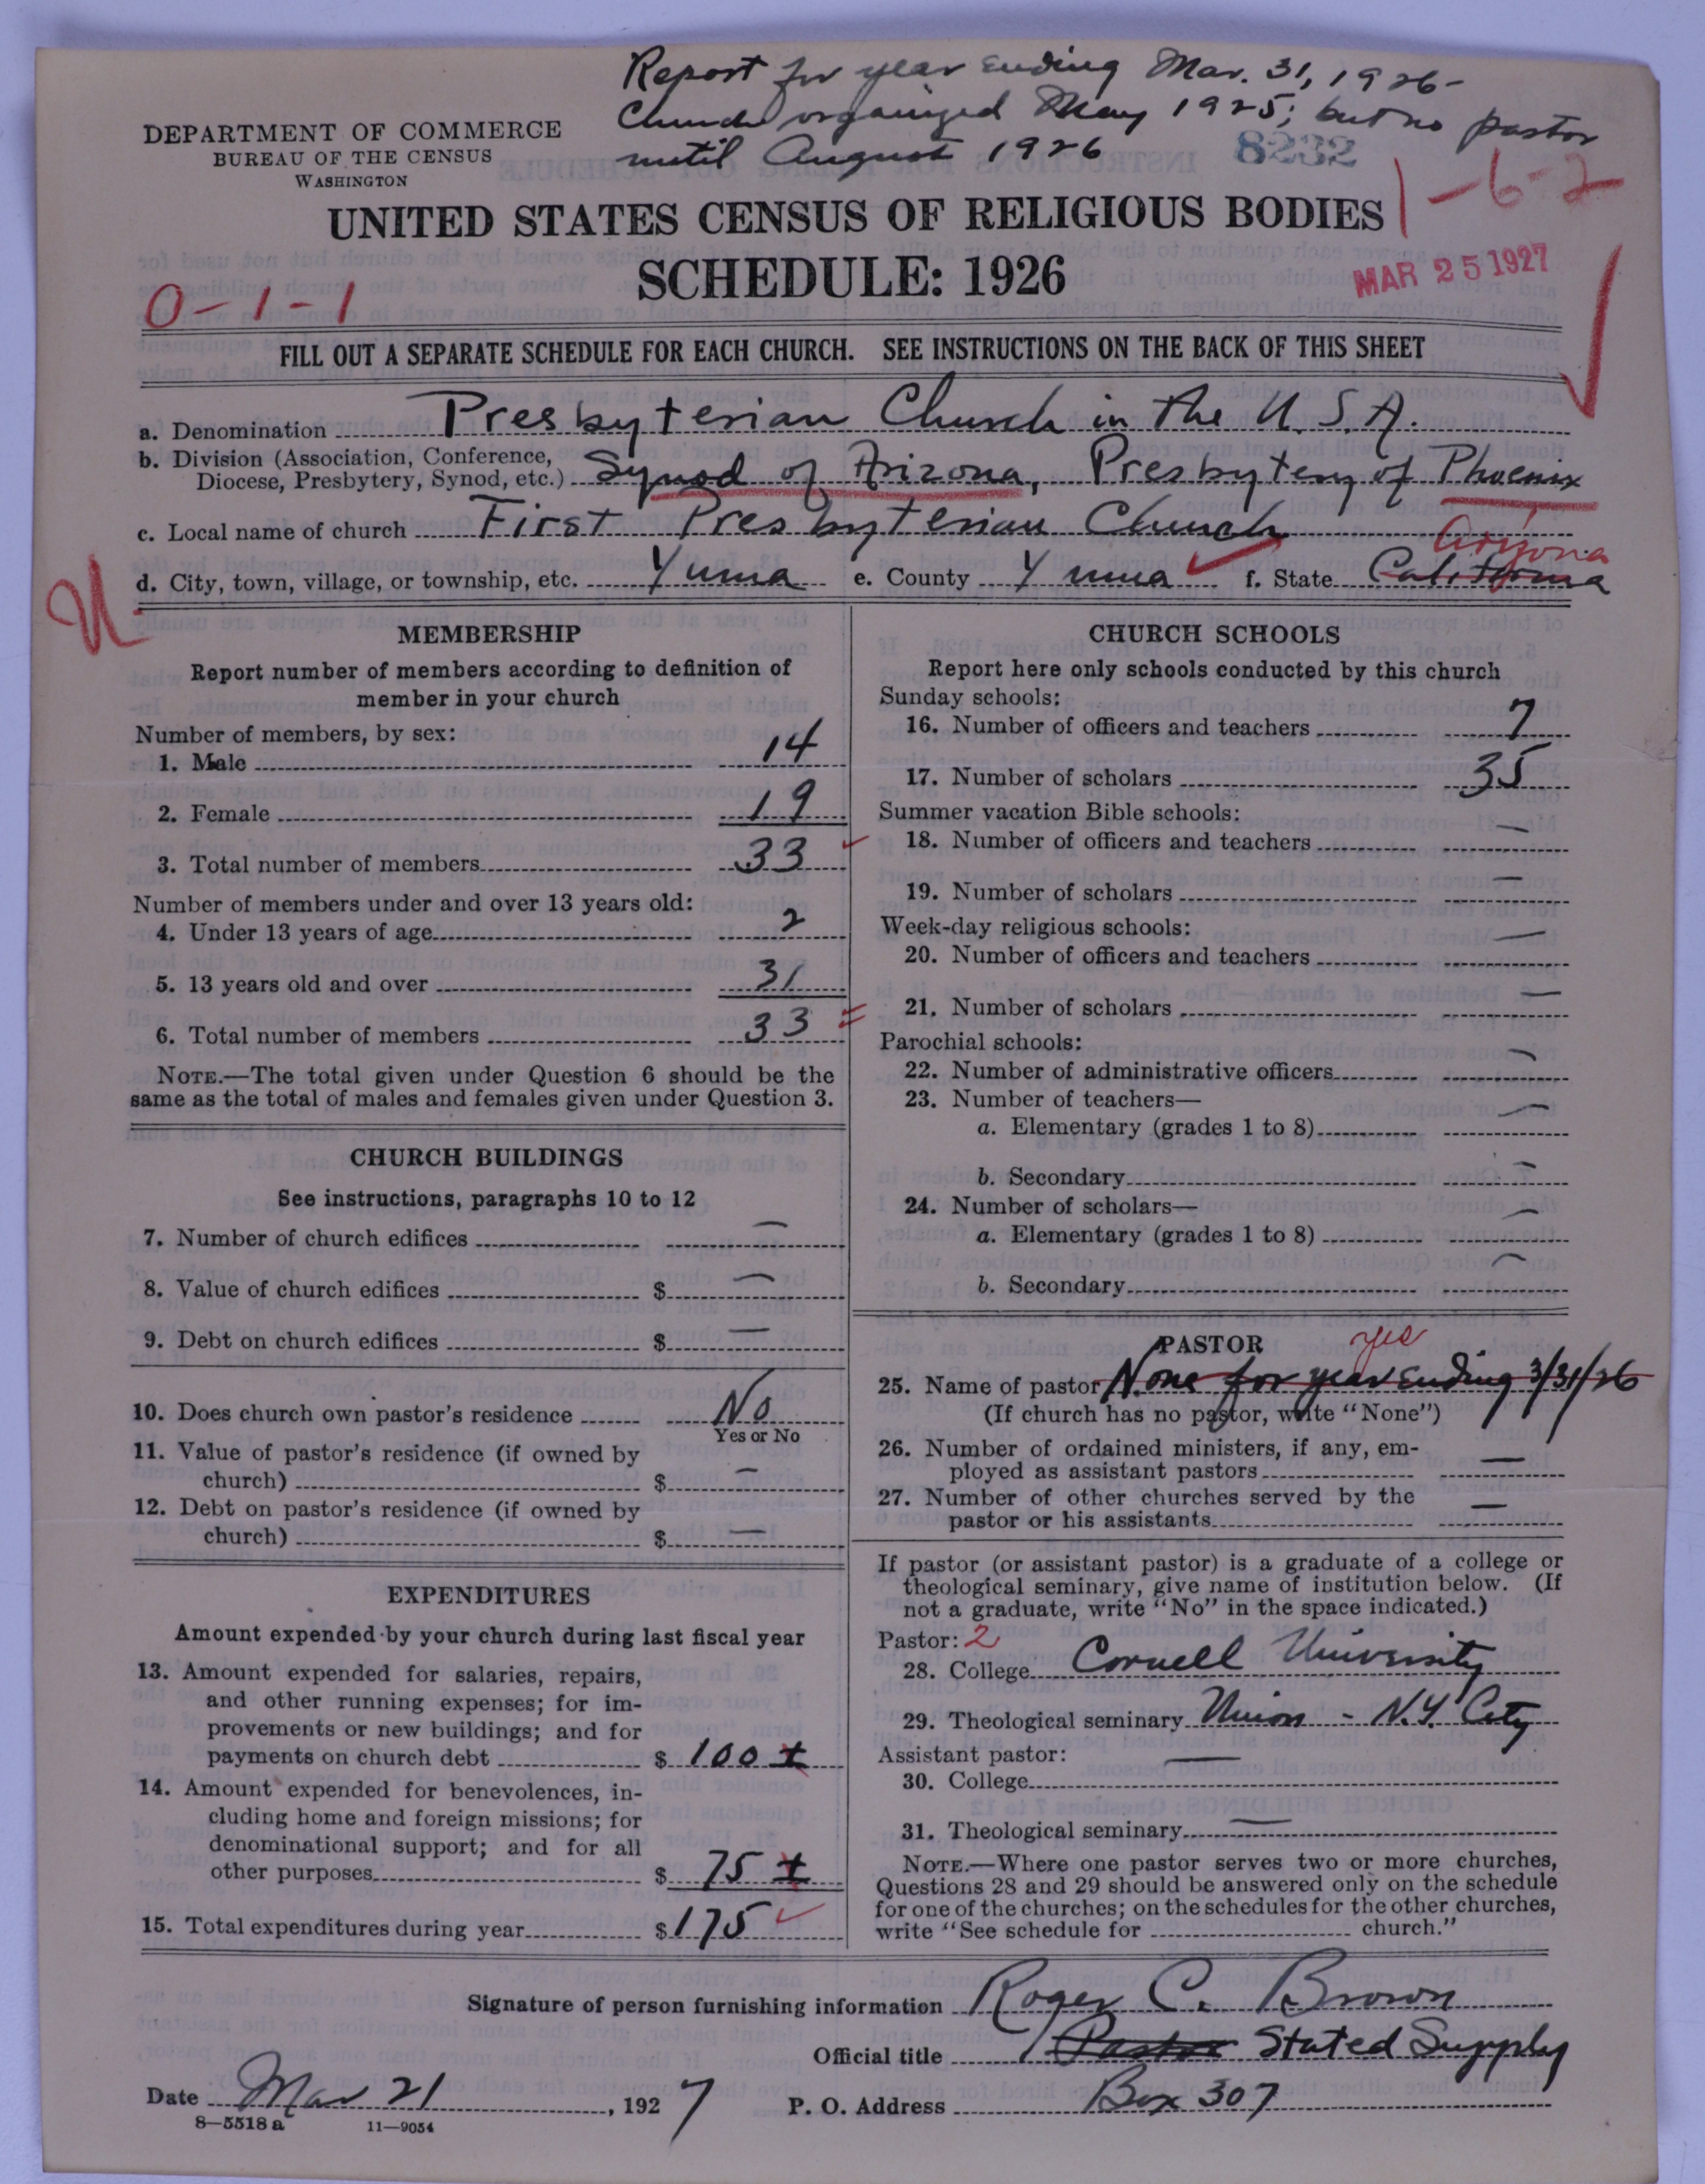 Report for year ending Mar. 31, 1926-
Church organized May 1925; but no pastor
until August 1926
8232
DEPARTMENT OF COMMERCE
BUREAU OF THE CENSUS
WASHINGTON
1-6-2
UNITED STATES CENSUS OF RELIGIOUS BODIES
SCHEDULE: 1926
MAR 25 1927
0-1-1
FILL OUT A SEPARATE SCHEDULE FOR EACH CHURCH. SEE INSTRUCTIONS ON THE BACK OF THIS SHEET
a. Denomination Presbyterian Church in the U.S.A.
b. Division (Association, Conference,
Diocese, Presbytery, Synod, etc.) Synod of Arizona, Presbytery of Phoenix
c. Local name of church First Presbyterian Church
Arizona
d. City, town, village, or township, etc. Yuma e. County Yuma f. State California
U
MEMBERSHIP
Report number of members according to definition of
member in your church
Number of members, by sex:
1. Male 14
2. Female 19
3. Total number of members 33
Number of members under and over 13 years old:
4. Under 13 years of age 2
5. 13 years old and over 31
6. Total number of members 33
NOTE.—The total given under Question 6 should be the
same as the total of males and females given under Question 3.
CHURCH BUILDINGS
See instructions, paragraphs 10 to 12
7. Number of church edifices —
8. Value of church edifices $ —
9. Debt on church edifices $ —
10. Does church own pastor's residence No
Yes or No
11. Value of pastor's residence (if owned by
church) $ —
12. Debt on pastor's residence (if owned by
church) $ —
EXPENDITURES
Amount expended by your church during last fiscal year
13. Amount expended for salaries, repairs,
and other running expenses; for im-
provements or new buildings; and for
payments on church debt $ 100 ±
14. Amount expended for benevolences, in-
cluding home and foreign missions; for
denominational support; and for all
other purposes $ 75 ±
15. Total expenditures during year $ 175
CHURCH SCHOOLS
Report here only schools conducted by this church
Sunday schools:
16. Number of officers and teachers 7
17. Number of scholars 35
Summer vacation Bible schools:
18. Number of officers and teachers —
19. Number of scholars —
Week-day religious schools:
20. Number of officers and teachers —
21. Number of scholars —
Parochial schools:
22. Number of administrative officers —
23. Number of teachers—
a. Elementary (grades 1 to 8) —
b. Secondary —
24. Number of scholars—
a. Elementary (grades 1 to 8) —
b. Secondary —
PASTOR
yes
25. Name of pastor None for year ending 3/31/26
(If church has no pastor, write "None")
26. Number of ordained ministers, if any, em-
ployed as assistant pastors —
27. Number of other churches served by the
pastor or his assistants —
If pastor (or assistant pastor) is a graduate of a college or
theological seminary, give name of institution below. (If
not a graduate, write "No" in the space indicated.)
Pastor: 2
28. College Cornell University
29. Theological seminary Union - N.Y. City
Assistant pastor: —
30. College
31. Theological seminary —
NOTE.—Where one pastor serves two or more churches,
Questions 28 and 29 should be answered only on the schedule
for one of the churches; on the schedules for the other churches,
write "See schedule for church."
Signature of person furnishing information Roger C. Brown
Official title Pastor Stated Supply
Date Mar 21, 1927 P. O. Address Box 307
8—5518 a 11—9054